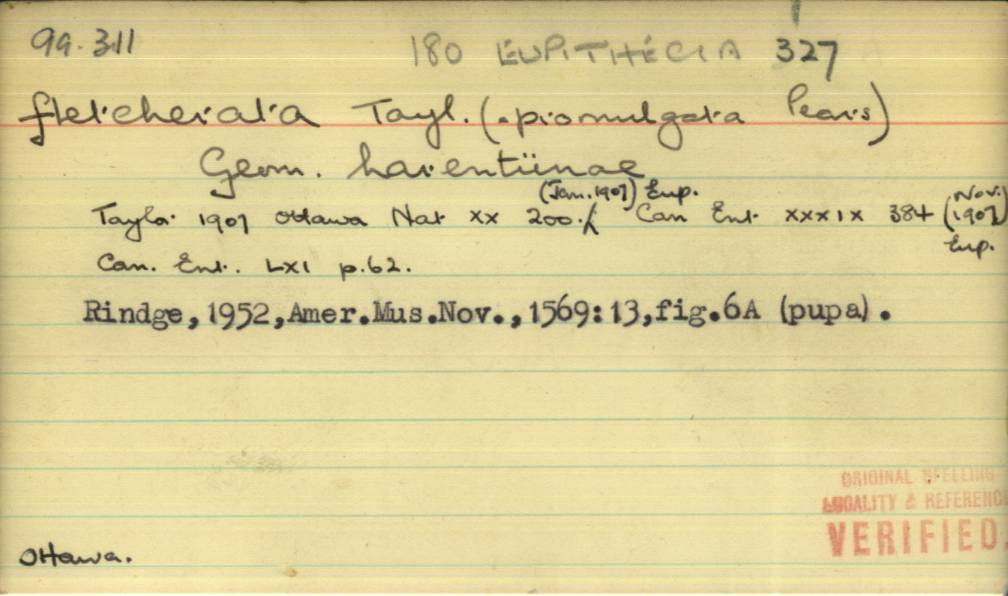 99.311 180 EUPITHECIA 327
fletcherata Tayl. (. promulgata Pears)
Geom. larentiinae
(Jan. 1907) Eup. (Nov. 1907) Eup.
Taylor 1907 Ottawa Nat XX 200. Can Ent. XXXIX 384
Can. Ent. LXI p.62.
Rindge,1952,Amer.Mus.Nov.,1569:13,fig.6A (pupa).
ORIGINAL SPELLING
LOCALITY & REFERENC
VERIFIED.
Ottawa.